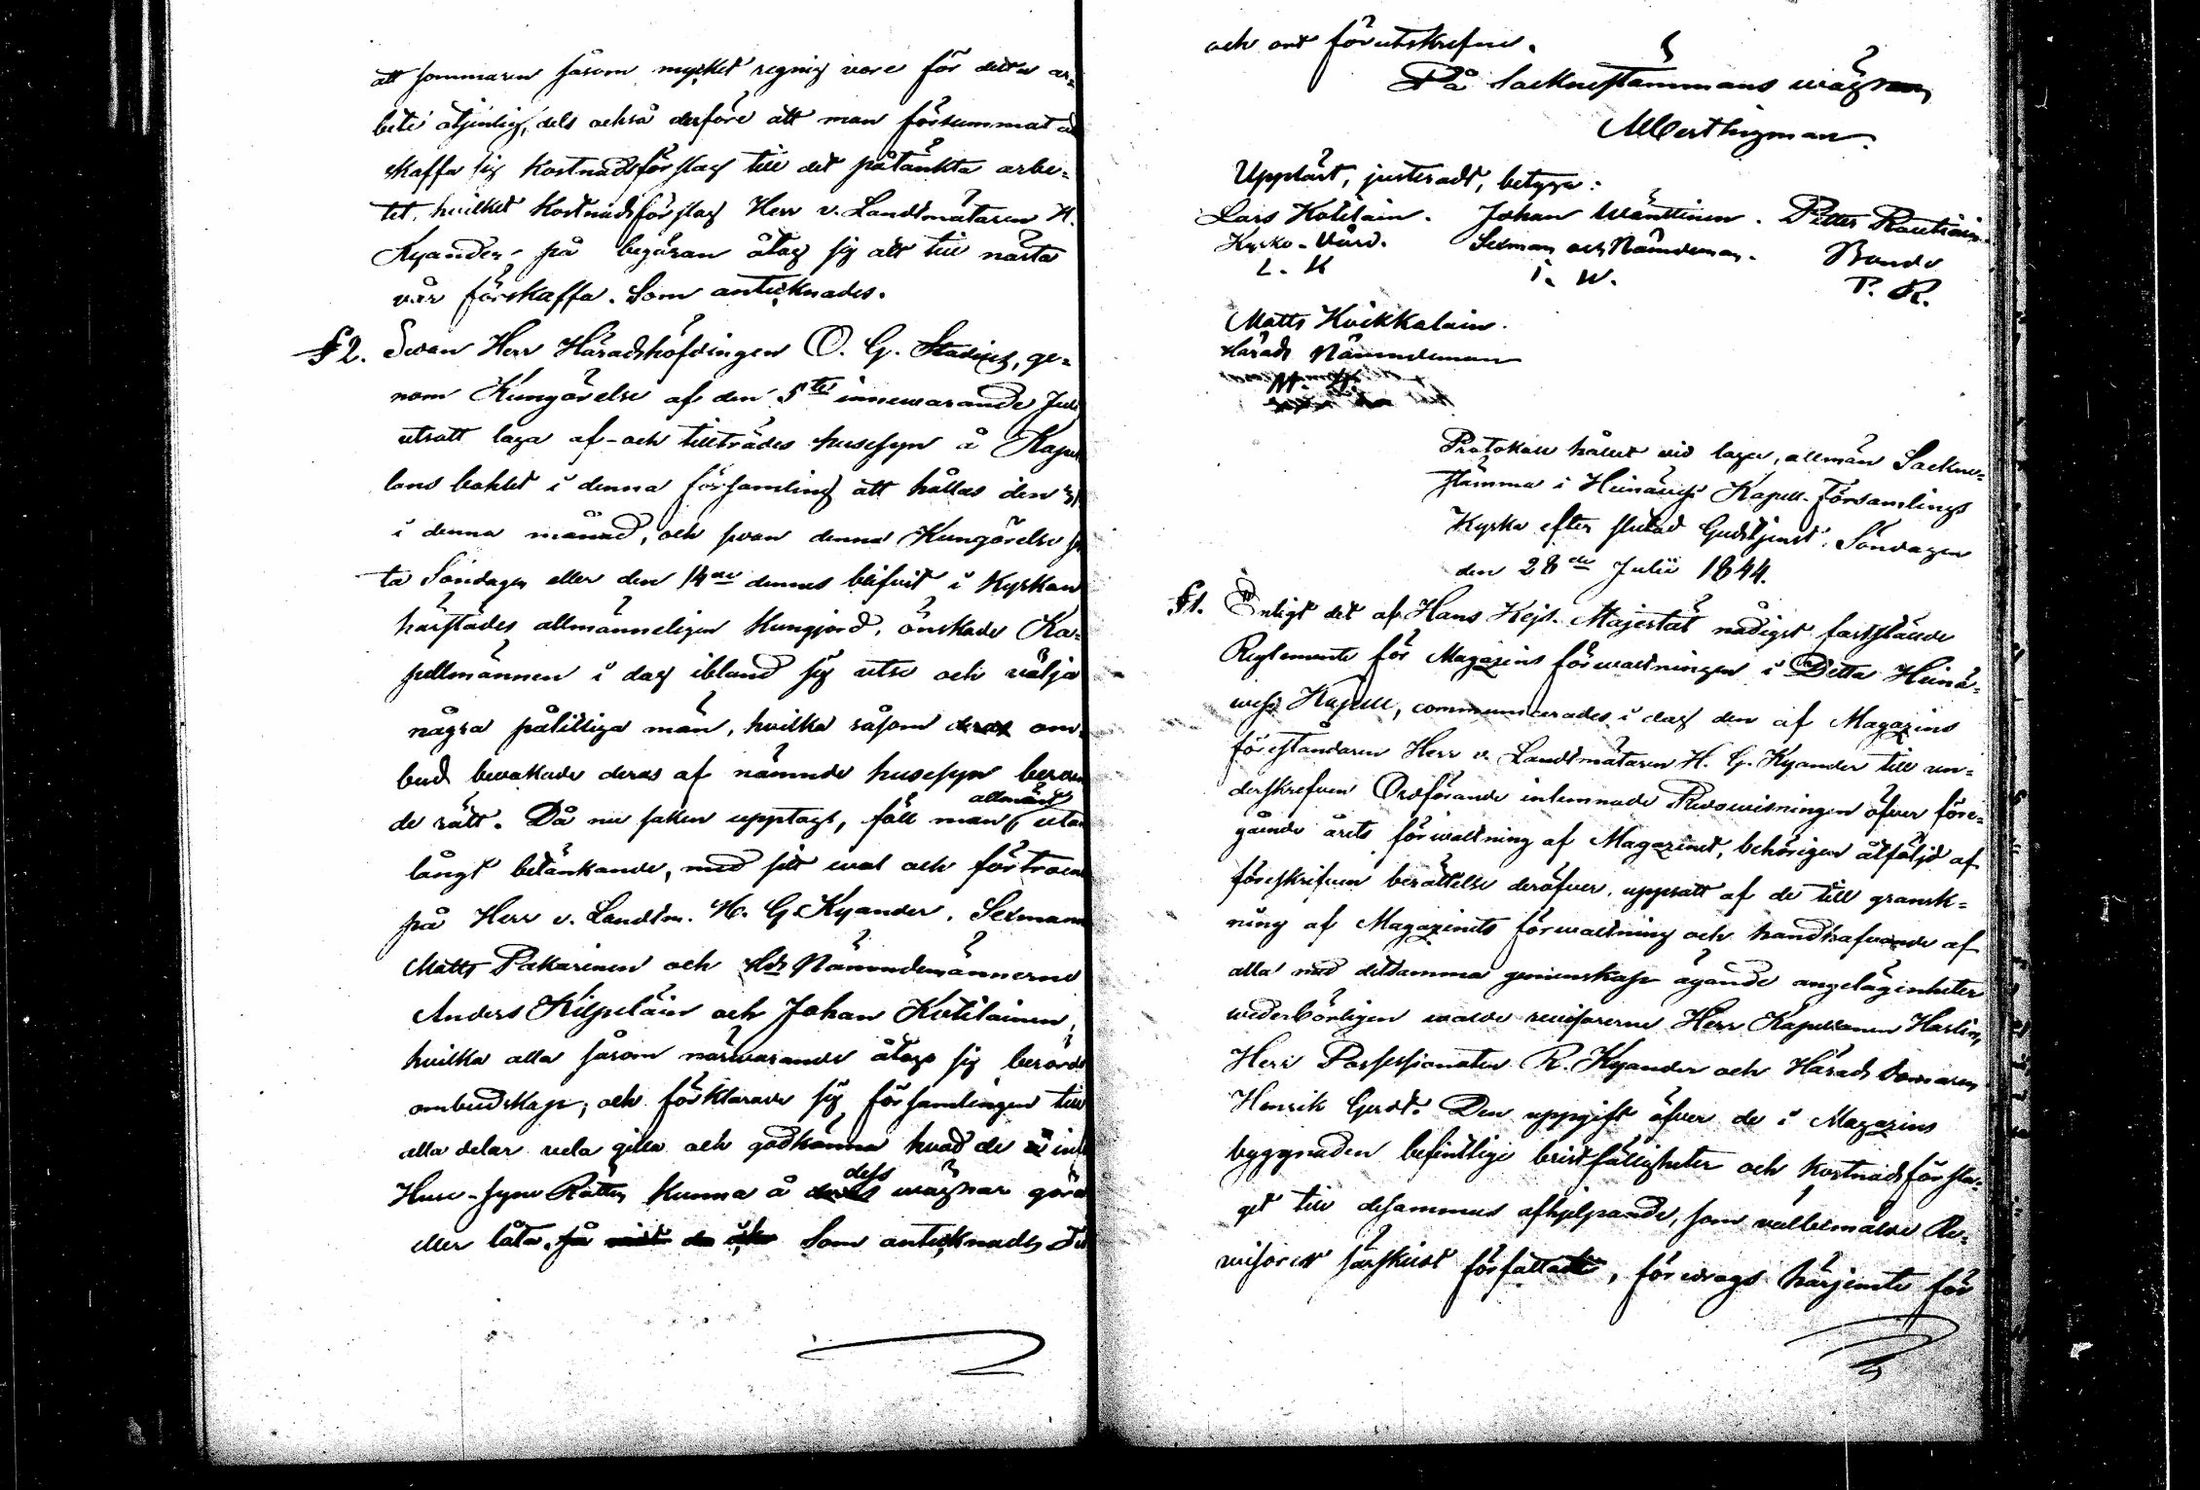 att sommaren såsom mycket regnig vore för detta ar=
bete otjenlig, dels också derföre att man försummat a
skaffa sig kostnadsförslag till det påtänkta arbe=
tet, hvilket kostnadsförslag Herr v. Landtmätaren H.
Kyander på begäran åtog sig att till nästa
vår förskaffa. Som antecknades.
§ 2. Sedan Herr Häradshöfdingen O. G. ge=
nom Kungörelse af den 5te innewarande Juli
utsatt laga af- och tillträdes husesyn å Kapel
lans bohlet i denna församling att hållas den 31
i denna månad, och sedan denna Kungörelse
ta Söndagen eller den 14de dennes blifvit i Kyrkan
härstädes allmänneligen kungjord, önskade Ka=
pellmännen i dag ibland sig utse och välja
några pålitliga män, hvilka såsom deras om=
bud bevakade deras af nämnde husesyn beroen
de rätt. Då nu saken upptogs, föll man allmänt utan
långt betänkande, med sitt wal och förtroen
på Herr v. Landtm. H. G. Kyander, Sexmann
Matts Pakarinen och Hds Nämndemännerne
Anders Kilpeläin och Johan Kotilainen,
hvilka alla såsom närwarande åtogo sig berörde
ombudskap; och förklarade sig församlingen till
alla delar vela gilla och godkänna hvad de in
Huse-syns Rätten kunna å dess wägnar göra
eller låta. Som antecknades
och ort förutskrefne.
På Socknestämmans wägnar
Uppläst, justeradt, betyga:
Lars Kotilain. Johan Wänttinen. Petter Rautiain
Kyrko-Värd. Sexman och Nämdeman. Bonde
L. K I. W. P. R.
Matts Kvikkalain.
Härads Nämndeman
M. K.
Protokoll hållet vid laga, allmän Sockne=
stämma i Heinäwesi Kapell-Församlings
Kyrka efter slutad Gudstjenst, Söndagen
den 28de Julii 1844.
§1. Enligt det af Hans Kejs. Majestät nådigst fastställde
Reglemente för Magazins förwaltningen i Detta Heinä=
wesi Kapell, communicerades i dag den af Magazins
föreståndaren Herr v. Landtmätaren H. G. Kyander till un=
derskrefven Ordförande inlemnade Redowisningen öfver före=
gående årets förwaltning af Magazinet, behörigen åtföljd af
föreskrifven berättelse deröfver, uppsatt af de till gransk=
ning af Magazinets förwaltning och handhafvande af
alla med detsamma gemenskap ägande angelägenheter
wederbörligen walde revisorerne Herr Kapellanen Harlin,
Herr Possessionaten R. Kyander och Härads Domaren
Henrik Den uppgift öfver de i Magazins
byggnaden befintlige bristfälligheter och kostnadsförsla=
get till desammas afhjelpande, som wälbemälde Re=
visorer särskildt författat, föredrogs härjemte för